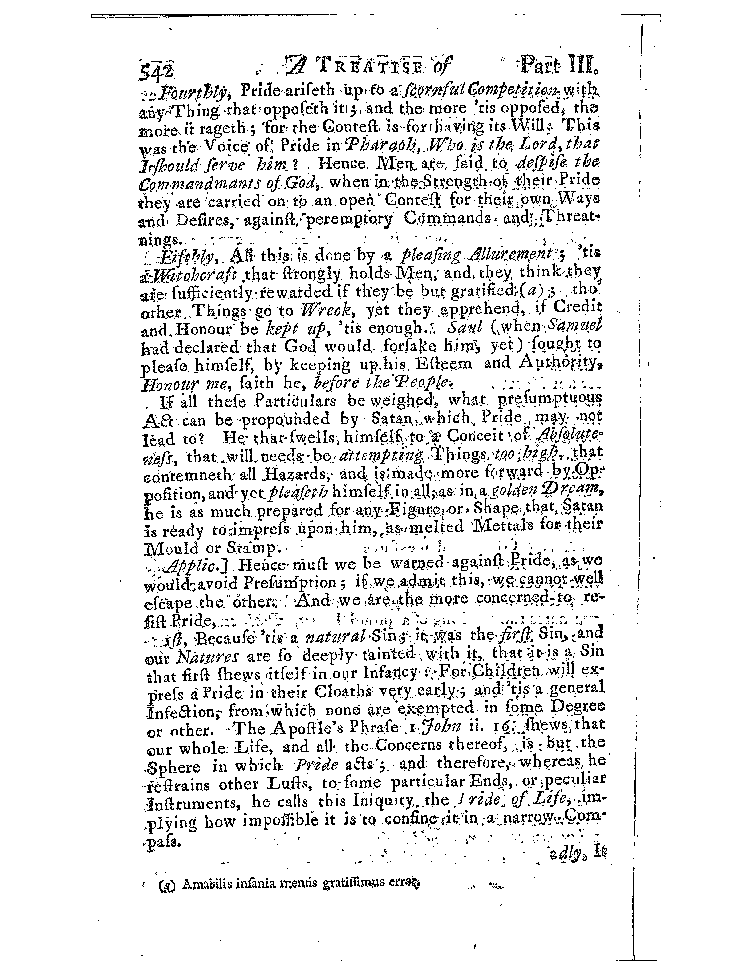 542 A TREATISE of Part III.
Fourthly, Pride ariseth up to a scornful Competition with
any Thing that opposeth it; and the more 'tis opposed, the
more it rageth; for the Contest is for having its Will. This
was the Voice of Pride in Pharaoh, Who is the Lord, that
I should serve him? Hence Men are said to despise the
Commandmants of God, when in the Strength of their Pride
they are carried on to an open Contest for their own Ways
and Desires, against peremptory Commands and Threat-
nings.
Fifthly, All this is done by a pleasing Allurement; 'tis
a Witchcraft that strongly holds Men, and they think they
are sufficiently rewarded if they be but gratified (a); tho'
other Things go to Wreck, yet they apprehend, if Credit
and Honour be kept up, 'tis enough. Saul (when Samuel
had declared that God would forsake him, yet) sought to
please himself, by keeping up his Esteem and Authority,
Honour me, saith he, before the People.
If all these Particulars be weighed, what presumptuous
Act can be propounded by Satan, which Pride may not
lead to? He that swells himself to a Conceit of Absolute-
ness, that will needs be attempting Things too high, that
contemneth all Hazards, and is made more forward by Op-
position, and yet pleaseth himself in all, as in a golden Dream,
he is as much prepared for any Figure or Shape that Satan
is ready to impress upon him, as melted Mettals for their
Mould or Stamp.
Applic.] Hence must we be warned against Pride, as we
would avoid Presumption; if we admit this, we cannot well
escape the other: And we are the more concerned to re-
sist Pride,
1st, Because 'tis a natural Sin; it was the first Sin, and
our Natures are so deeply tainted with it, that it is a Sin
that first shews itself in our Infancy: For Children will ex-
press a Pride in their Cloaths very early; and 'tis a general
Infection, from which none are exempted in some Degree
or other. The Apostle's Phrase 1 John ii. 16. shews that
our whole Life, and all the Concerns thereof, is but the
Sphere in which Pride acts; and therefore, whereas he
restrains other Lusts, to some particular Ends, or peculiar
Instruments, he calls this Iniquity the Pride of Life, im-
plying how impossible it is to confine it in a narrow Com-
pass.
2dly, It
(a) Amabilis insania mentis gratissimus error.